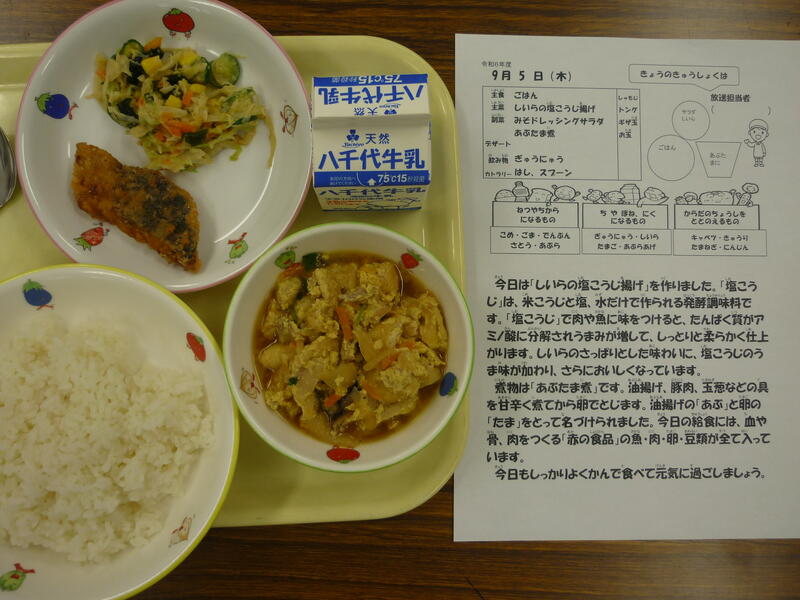 令和6年度
9月 5 日 (木)
きょうのきゅうしょくは
主食 ごはん
主菜 しいらの塩こうじ揚げ
副菜 みそドレッシングサラダ
あぶたま煮
デザート
飲み物 ぎゅうにゅう
カトラリー はし、スプーン
しゃもじ
トング
ギザ玉
お玉
放送担当者
( )
サラダ
しいら
ごはん
あぶた
まに
ねつやちから
になるもの
こめ・ごま・でんぷん
さとう・あぶら
ち や ほね、にく
になるもの
ぎゅうにゅう・しいら
たまご・あぶらあげ
からだのちょうしを
ととのえるもの
キャベツ・きゅうり
たまねぎ・にんじん
今日は「しいらの塩こうじ揚げ」を作りました。「塩こう
じ」は、米こうじと塩、水だけで作られる発酵調味料で
す。「塩こうじ」で肉や魚に味をつけると、たんぱく質がア
ミノ酸に分解されうまみが増して、しっとりと柔らかく仕上
がります。しいらのさっぱりとした味わいに、塩こうじのう
ま味が加わり、さらにおいしくなっています。
煮物は「あぶたま煮」です。油揚げ、豚肉、玉葱などの具
を甘辛く煮てから卵でとじます。油揚げの「あぶ」と卵の
「たま」をとって名づけられました。今日の給食には、血や
骨、肉をつくる「赤の食品」の魚・肉・卵・豆類が全て入って
います。
今日もしっかりよくかんで食べて元気に過ごしましょう。
75℃15秒殺菌
八千代牛乳
天然
八千代牛乳
75℃15秒殺菌